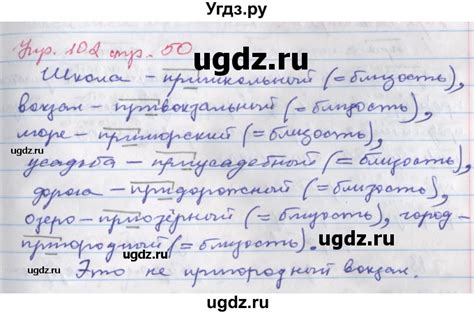 Угдз.ру
Упр. 102 стр. 50
ugdz.ru
Школа - пришкольный (=близость),
вокзал - привокзальный (=близость),
море - приморский (=близость),
ugdz.ru
ugdz.ru
усадьба - приусадебный (=близость),
дорога - придорожный (=близость),
озеро - приозёрный (=близость), город-
пригородный (=близость).
ugdz.ru
ugdz.ru
Это не пригородный вокзал.
ugdz.ru